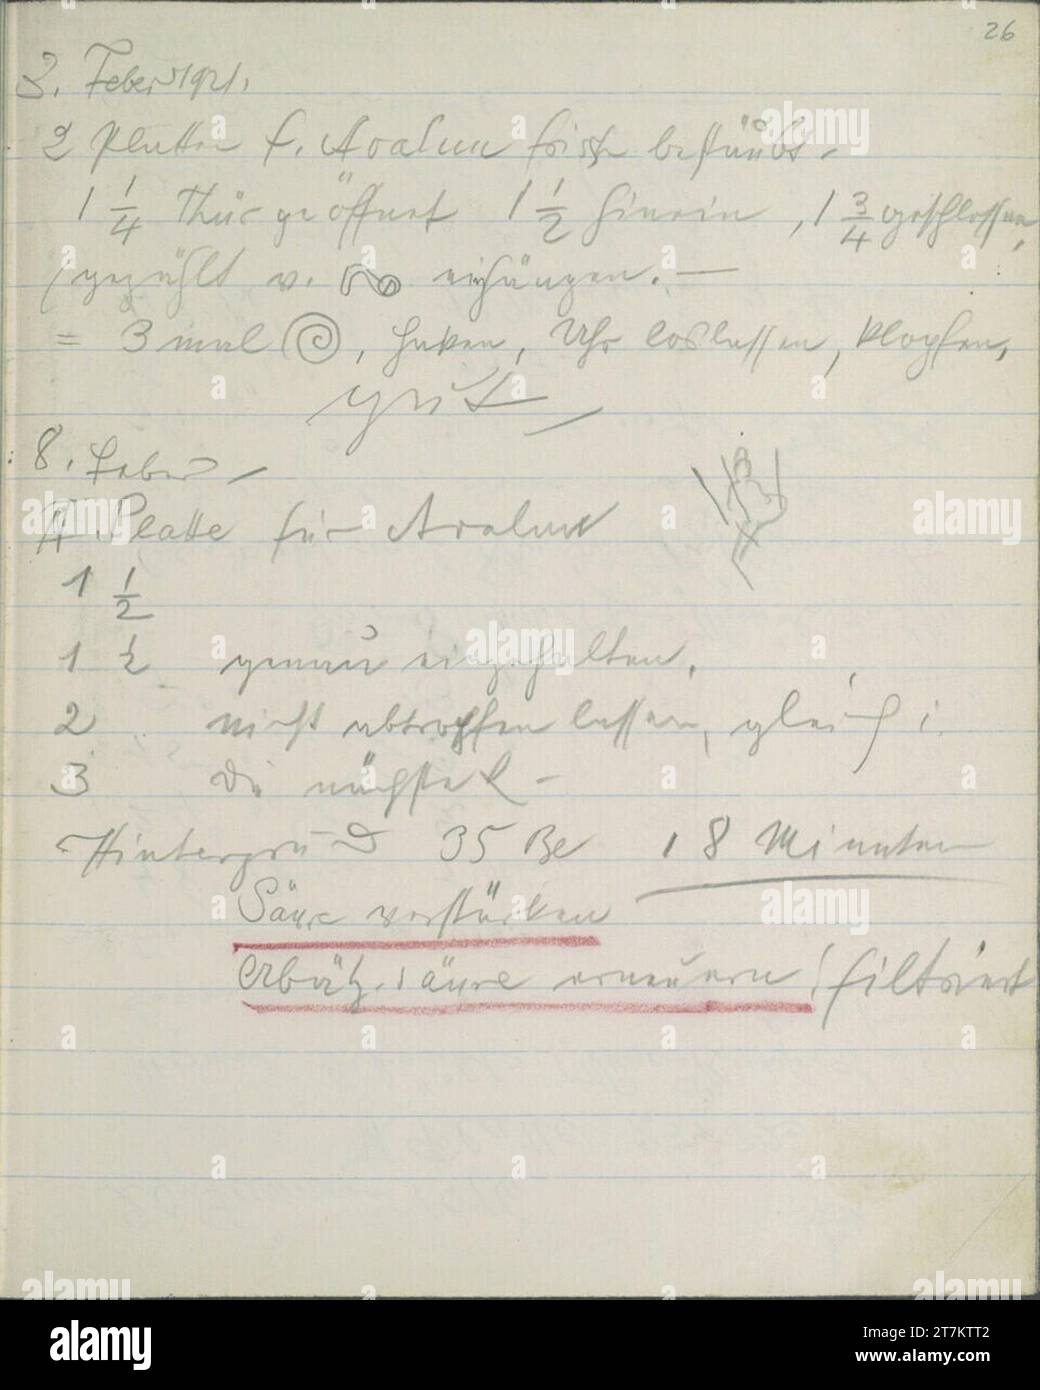 26
3. Feber 1921.
2 Platten f. Avalun frisch bestäubt.
1 1/4 Thür geöffnet 1 1/2 hinein, 1 3/4 geschlossen,
(gezählt v. einhängen. —
= 3 mal, Haken, Uhr loslassen, klopfen,
gut
8. Feber
Platte für Avalun
1 1/2
1 1/2 genau eingehalten.
2 nicht abtropfen lassen, gleich i.
3 die nächste
Hintergrund 35 Be 18 Minuten
Säure verstärken
Abätz-säure erneuern! filtriert
alamy
Image ID: 2T7KTT2
www.alamy.com